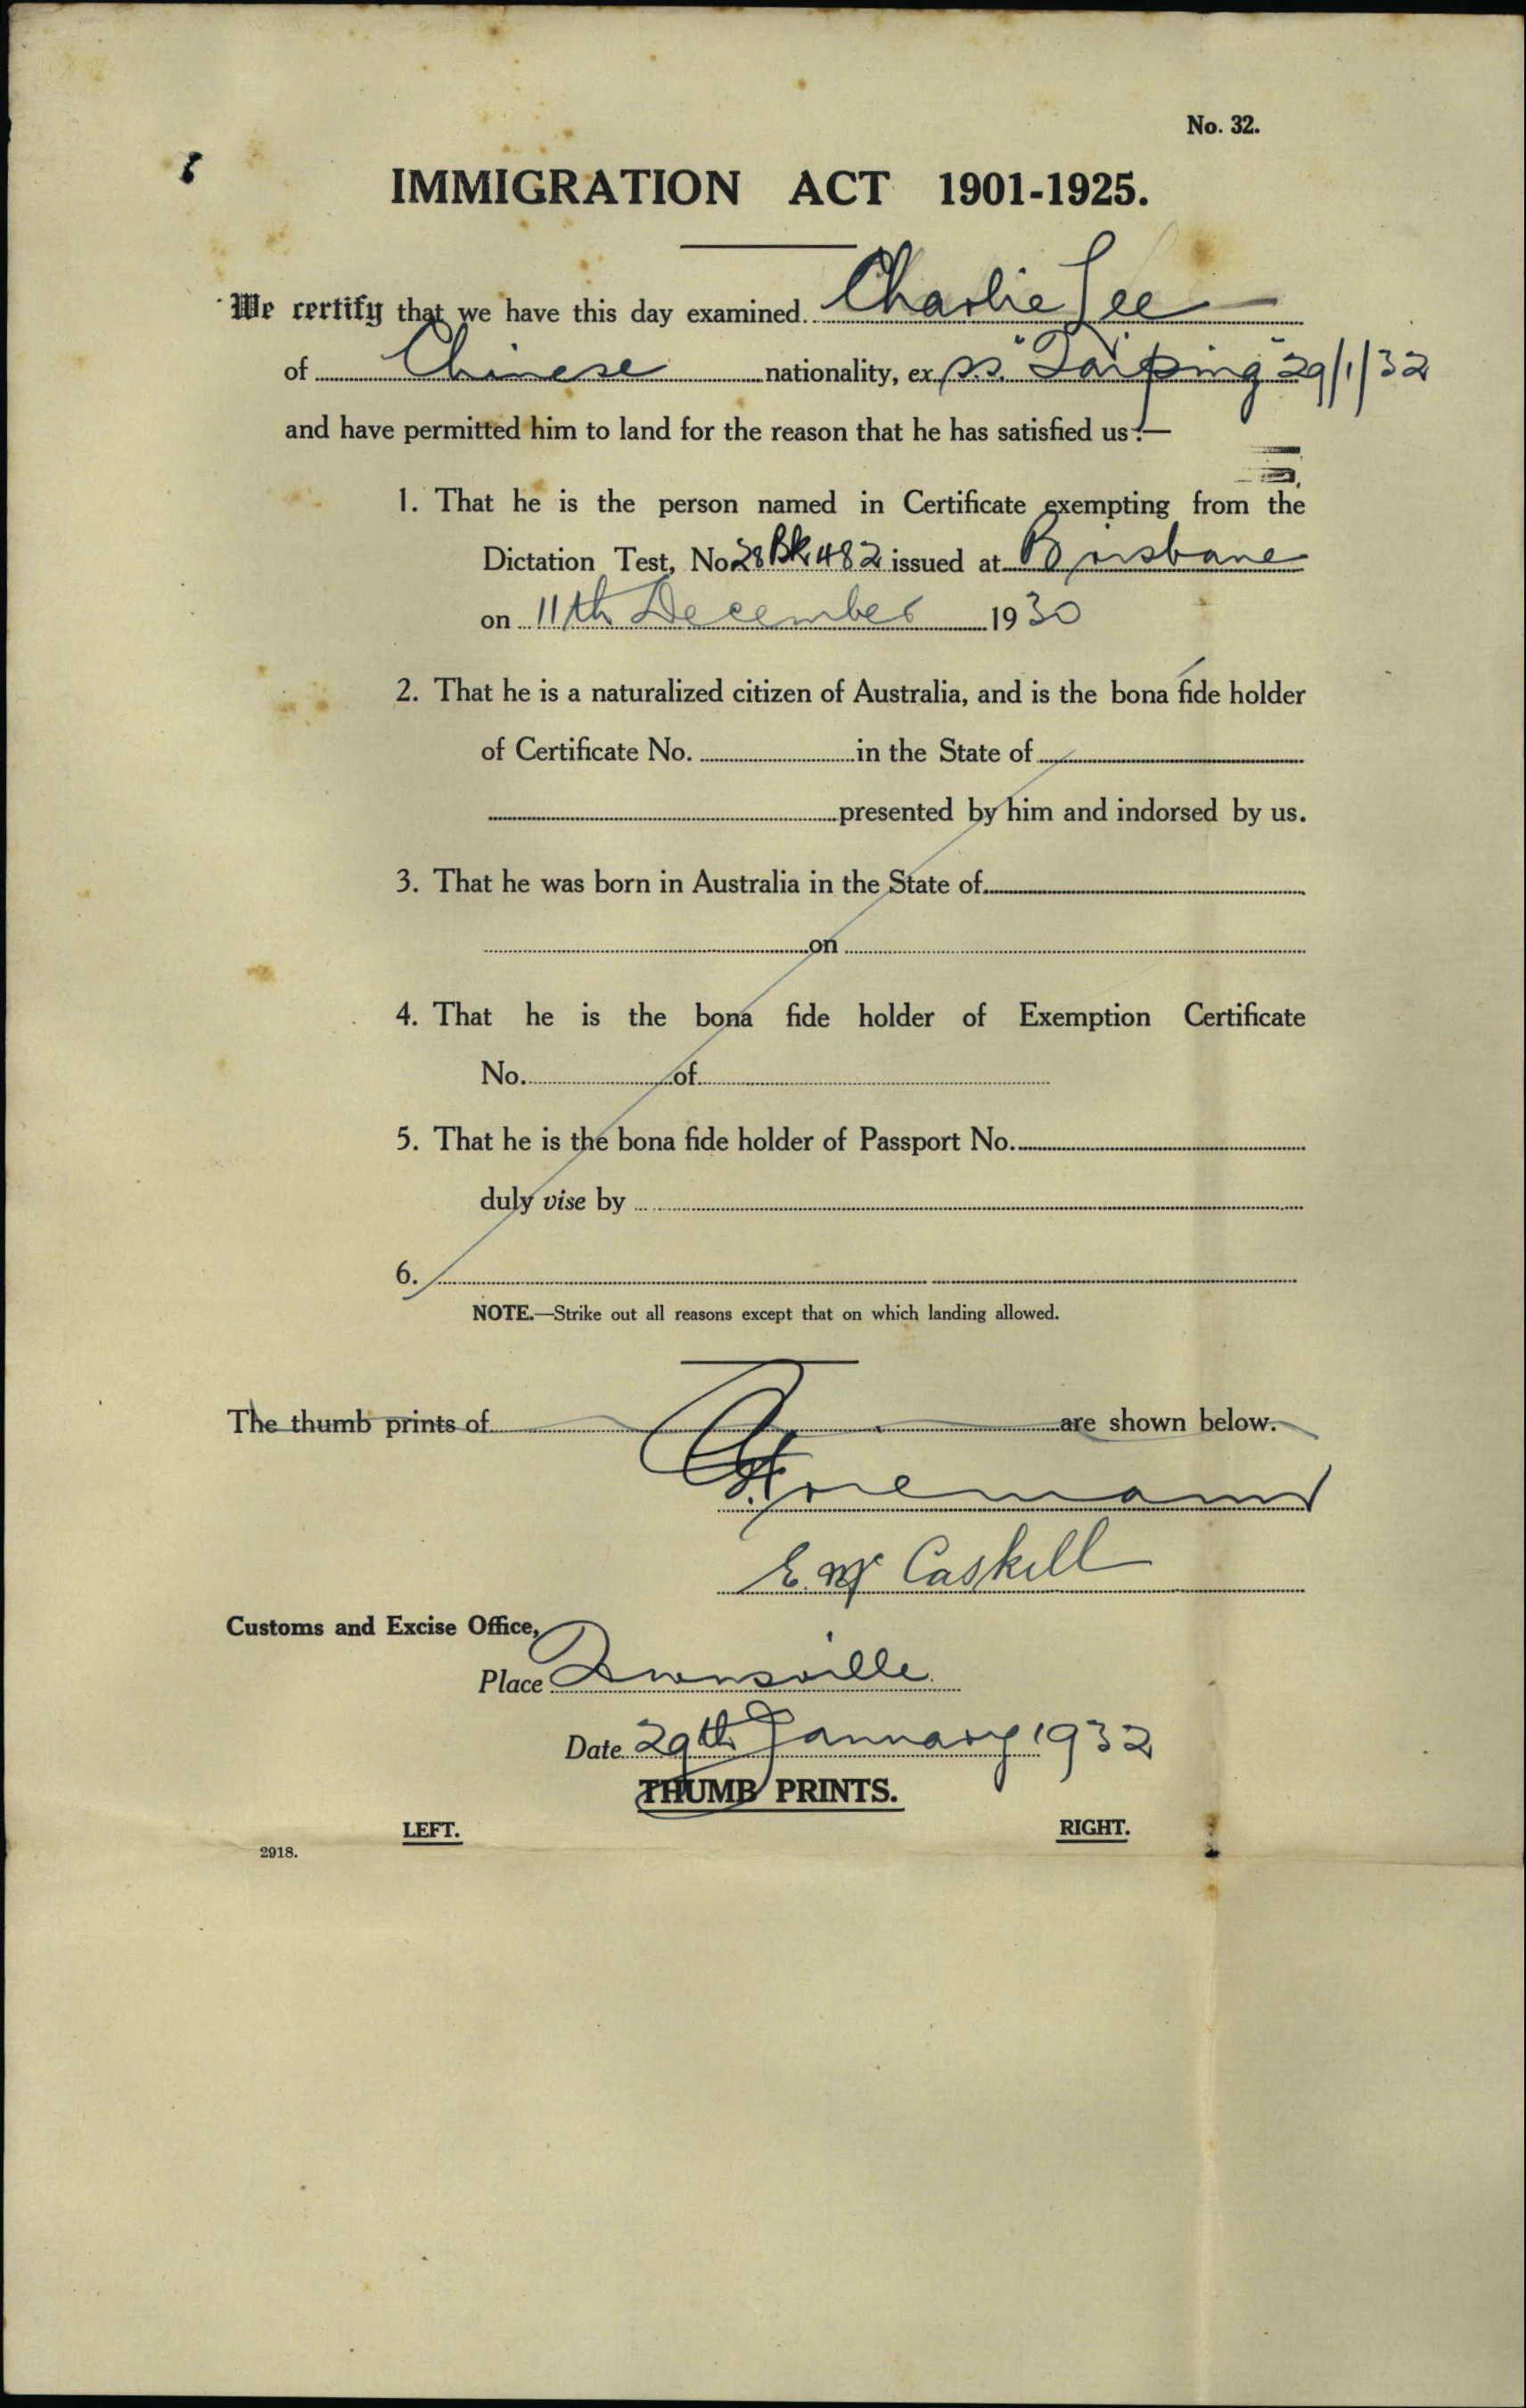 No. 32.
IMMIGRATION ACT 1901-1925.
We certify that we have this day examined Charlie Lee
of Chinese nationality, ex s.s. "Taiping" 29/1/32
and have permitted him to land for the reason that he has satisfied us :—
1. That he is the person named in Certificate exempting from the
Dictation Test, No 28 Bk 482 issued at Brisbane
on 11th December 1930
2. That he is a naturalized citizen of Australia, and is the bona fide holder
of Certificate No. in the State of
presented by him and indorsed by us.
3. That he was born in Australia in the State of
on
4. That he is the bona fide holder of Exemption Certificate
No. of
5. That he is the bona fide holder of Passport No.
duly vise by
6.
NOTE.—Strike out all reasons except that on which landing allowed.
The thumb prints of are shown below.
Foremann
E. McCaskill
Customs and Excise Office,
Place Townsville
Date 29th January 1932
THUMB PRINTS.
LEFT. RIGHT.
2918.